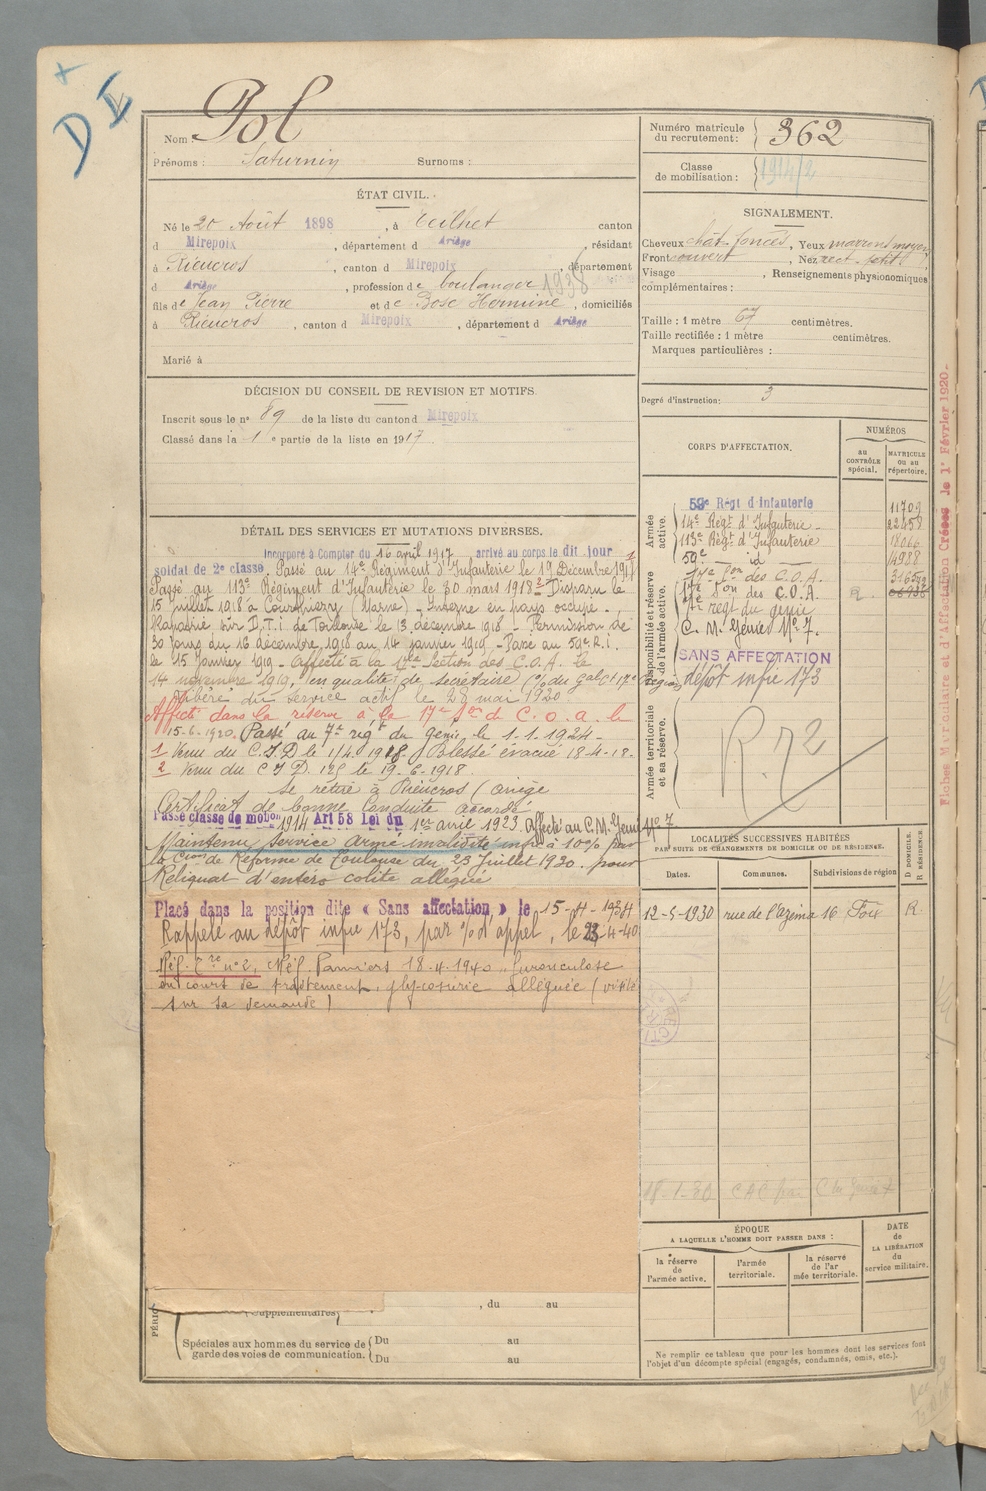 DI
Nom : Pol
Prénoms : Saturnin Surnoms :
Numéro matricule du recrutement: 362
Classe de mobilisation : 1914/2
ÉTAT CIVIL.
Né le 20 Août 1898, à Teilhet canton
d Mirepoix, département d Ariège, résidant
à Rieucros, canton d Mirepoix, département
d Ariège, profession de boulanger 1938
fils de Jean Pierre et de Bosc Hermine, domiciliés
à Rieucros, canton d Mirepoix, département d Ariège
Marié à
SIGNALEMENT.
Cheveux chât. foncés, Yeux marrons moyen
Front ouvert, Nez rect. petit
Visage , Renseignements physionomiques
complémentaires :
Taille : 1 mètre 67 centimètres.
Taille rectifiée : 1 mètre centimètres.
Marques particulières :
Degré d'instruction: 3
DÉCISION DU CONSEIL DE REVISION ET MOTIFS.
Inscrit sous le n° 89 de la liste du canton d Mirepoix
Classé dans la 1e partie de la liste en 1917
DÉTAIL DES SERVICES ET MUTATIONS DIVERSES.
incorporé à Compter du 16 april 1917, arrivé au corps le dit jour 1
soldat de 2e classe. Passé au 14e Régiment d'Infanterie le 19 Décembre 1917
Passé au 113e Régiment d'Infanterie le 30 mars 1918 2 Disparu le
15 juillet 1918 à Courthiezy (Marne) - Interné en pays occupé -
Rapatrié sur D.T.I. de Toulouse le 13 décembre 1918 - Permission de
30 jours du 16 décembre 1918 au 14 janvier 1919 - Passé au 59e R.I.
le 15 janvier 1919 - Affecté à la 17e Section des C.O.A. le
14 novembre 1919, en qualité de secrétaire (O/ du Gal Ct 17e Région)
Libéré du service actif le 28 mai 1920
Affecté dans la réserve à la 17e Son de C.O.A. le
15-6-1920. Passé au 7e régt du génie, le 1.1.1924 -
1 Venu du C.I.D le 1.4.1918. Blessé évacué 18-4-18.
2 Venu du C.I.D. 125 le 19-6-1918.
Se retire à Rieucros (Ariège
Certificat de bonne Conduite accordé
Passé classe de mobon 1914 Art 58 Loi du 1er avril 1923. Affecté au C.M. Génie No 7.
Maintenu service armé invalidité infre à 10% par
la Cion de Réforme de Toulouse du 23 Juillet 1930. pour
Reliquat d'entéro colite alléguée
Placé dans la position dite « Sans affectation, » le 15-4-1934
Rappelé au dépôt infie 173, par O/ d'appel, le 23-4-40
Réf. Tre n°2, Réf. Pamiers 18-4-1940 "Furonculose
en cours de traitement, glycosurie alléguée (visité
sur sa demande)
CORPS D'AFFECTATION.
NUMÉROS
au CONTRÔLE spécial.
MATRICULE ou au répertoire.
Armée active.
59e Régt d'infanterie 11709
14e Régt d'Infanterie - 22458
113e Régt d'Infanterie 18066
59e id 14988
Disponibilité et réserve de l'armée active.
17e Son des C.O.A.
17e Son des C.O.A. R
7e régt du génie
C.M. Génie No 7.
SANS AFFECTATION
dépôt infie 173
Armée territoriale et sa réserve.
R.72
LOCALITÉS SUCCESSIVES HABITÉES
PAR SUITE DE CHANGEMENTS DE DOMICILE OU DE RÉSIDENCE.
Dates. Communes. Subdivisions de région
D DOMICILE. R RÉSIDENCE.
12-5-1930 rue de l'Azéma 16 Foix R.
18-1-30 CAC
ÉPOQUE
A LAQUELLE L'HOMME DOIT PASSER DANS :
la réserve de l'armée active.
l'armée territoriale.
la réserve de l'armée territoriale.
DATE de LA LIBÉRATION du service militaire.
Ne remplir ce tableau que pour les hommes dont les services font
l'objet d'un décompte spécial (engagés, condamnés, omis, etc.).
PÉRIO
Supplémentaires , du au
Spéciales aux hommes du service de garde des voies de communication.
Du au
Du au
Fiches Matriculaire et d'Affectation Créées le 1er Février 1920 -